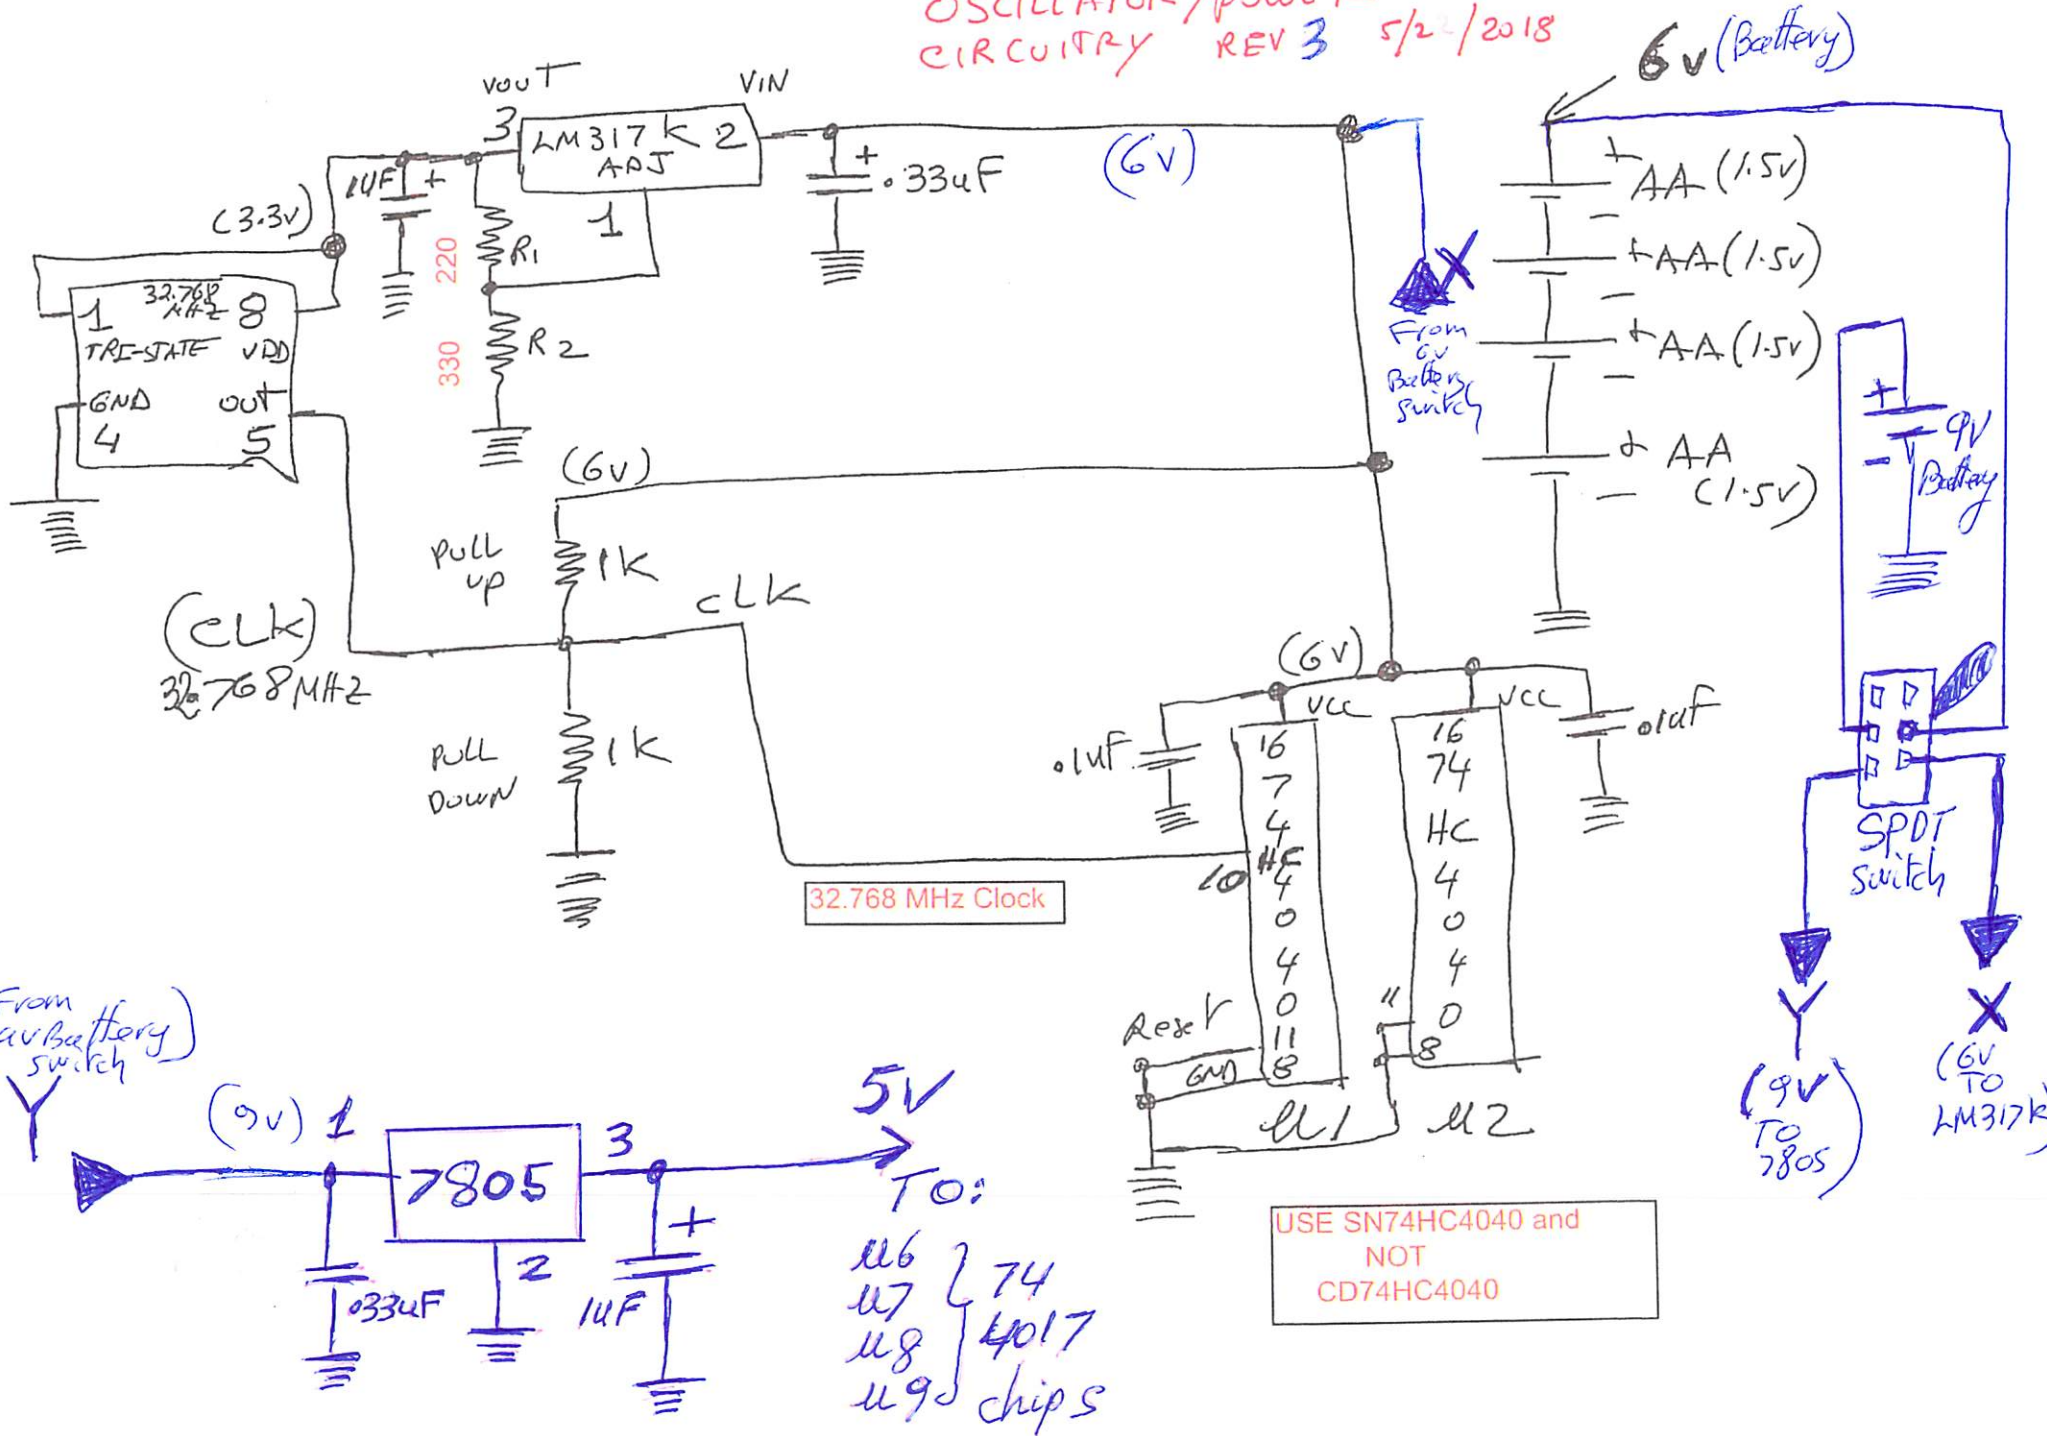 OSCILLATOR/POWER
CIRCUITRY REV 3 5/2 /2018
6v (Battery)
VOUT
VIN
3 LM317K 2
ADJ
1
1UF +
+ .33uF
(6V)
(3.3v)
220
R1
330
R2
32.768
MHZ
1 8
TRI-STATE VDD
GND OUT
4 5
+ AA (1.5v)
-
+ AA (1.5v)
-
+ AA (1.5v)
-
+ AA
- (1.5v)
X
From
6v
Battery
switch
+
9V
-
Battery
(6v)
PULL
UP
1K
CLK
(CLK)
32.768MHZ
PULL
DOWN
1K
(6v)
VCC
VCC
.1UF
.1UF
16
7
4
HC
4
0
4
0
11
8
10
16
74
HC
4
0
4
0
8
11
32.768 MHz Clock
Reset
GND
U1
U2
SPDT
switch
Y
(9V
TO
7805)
X
(6V
TO
LM317K)
From
9v Battery)
switch
Y
(9v) 1
7805
3
2
.33uF
+
1UF
5V
TO:
U6
U7
U8
U9
74
4017
chips
USE SN74HC4040 and
NOT
CD74HC4040